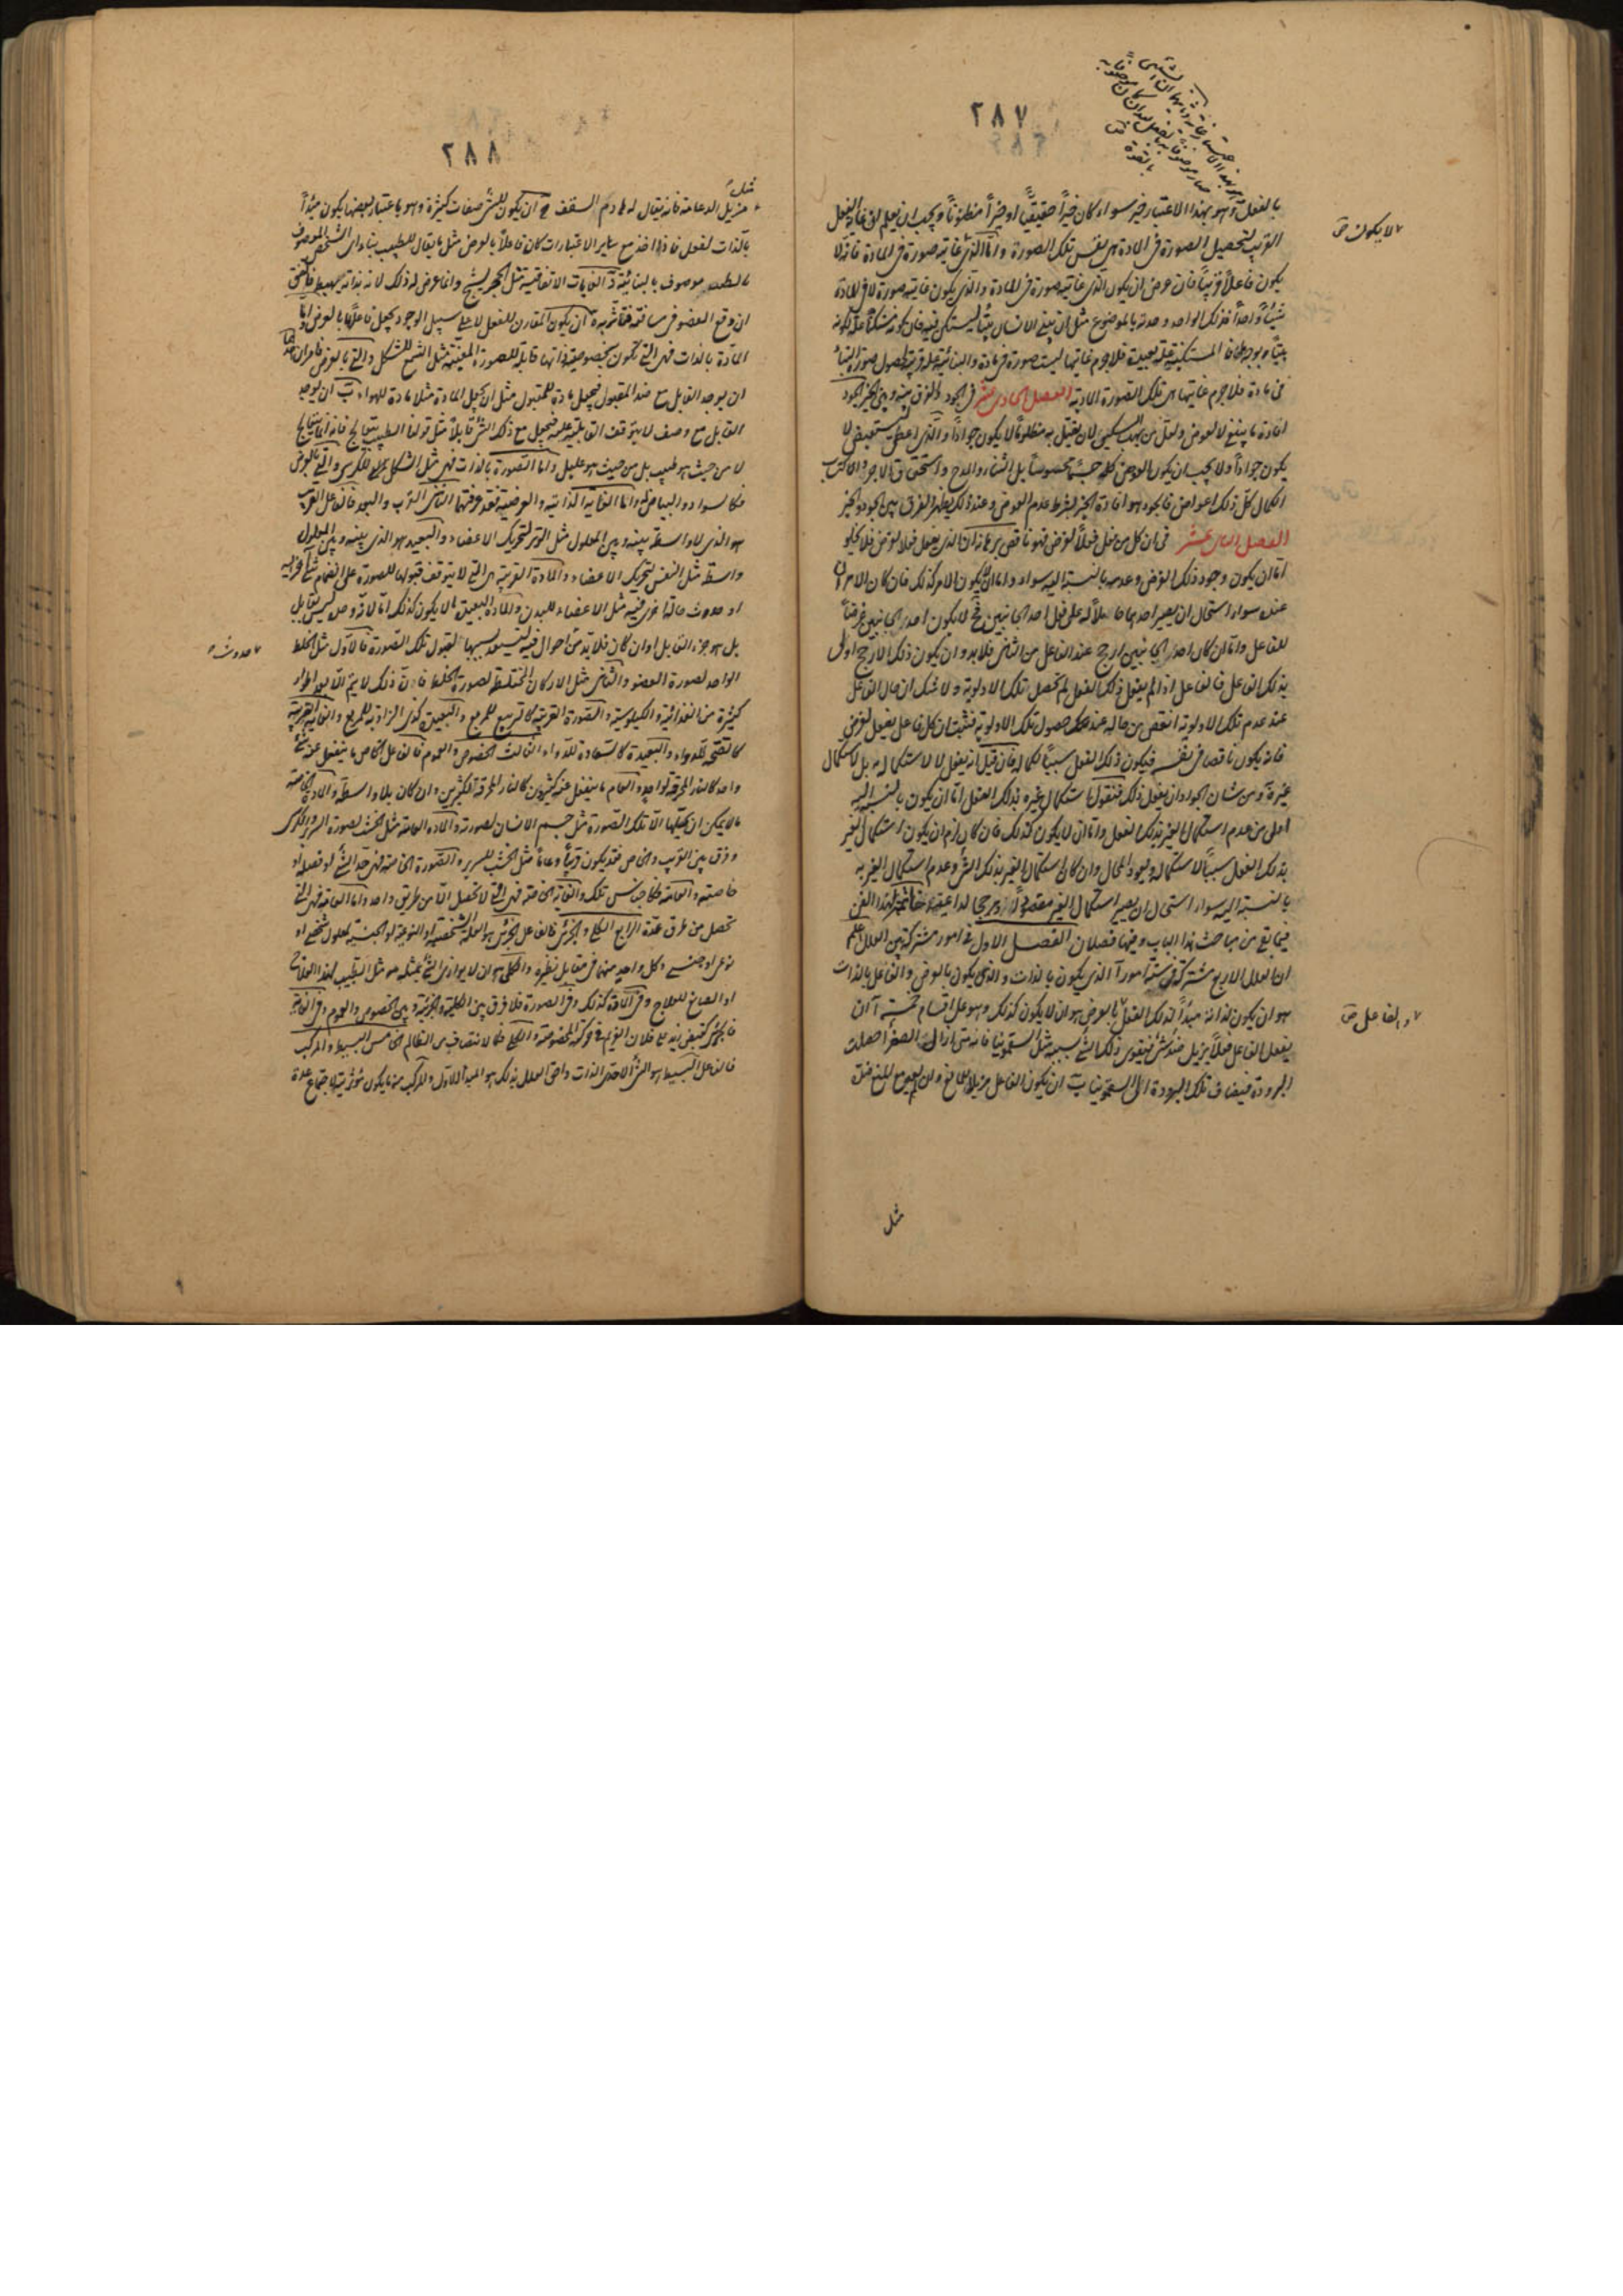 ٢٨٧
بالفعل وهو بهذا الاعتبار خير سواء كان خيراً حقيقياً او خيراً مظنوناً ويجب ان يعلم ان غاية الفعل
القريب لتحصيل الصورة فى المادة هى نفس تلك الصورة واما الذى غايته صورة فى المادة فانه لا
لا يكون
يكون فاعلاً قريباً فان عرض ان يكون الذى غايته صورة فى المادة والذى يكون غايته صورة لا فى المادة
شيئاً واحداً فذلك الواحد وحدته بالموضوع مثل ان يبنى الانسان بيتاً ليستكن فيه فان كونه مستكناً علة لكونه
فى مادة فلا جرم غايتها هى تلك الصورة المادية الفصل الحادى عشر فى الجود والفرق بينه وبين الخير الجود
افادة ما ينبغى لا لعوض ولعل من يهب السكين لمن يقتل به مظلوماً لا يكون جواداً والذى اعطى ليستعيض لا
يكون جواداً ولا يجب ان يكون العوض كله جسماً محسوساً بل الثناء والمدح واستحقاق الاجر واكتساب
الكمال كل ذلك اعواض فالجود هو افادة الخير لشرط عدم العوض وعند ذلك يظهر الفرق بين الجود والخير
الفصل الثانى عشر فى ان كل من فعل فعلاً لغرض فهو ناقص برهانه ان الذى يفعل فعلاً لغرض فلا يخلو
اما ان يكون وجود ذلك الغرض وعدمه بالنسبة اليه سواء واما ان لا يكون الامر كذلك فان كان الامران
عنده سواء استحال ان يصير احدهما حاملاً له على فعل احد الجانبين فح لا يكون احد الجانبين غرضاً
للفاعل واما ان كان احد الجانبين ارجح عند الفاعل من الثانى فلا بد وان يكون ذلك الارجح اولى
بذلك الفاعل فالفاعل اذا لم يفعل ذلك الفعل لم تحصل تلك الاولوية ولا شك ان حال الفاعل
عند عدم تلك الاولوية انقص من حاله عند حصول تلك الاولوية فثبت ان كل فاعل يفعل لغرض
فانه يكون ناقصا فى نفسه فيكون ذلك الفعل سبباً لكماله فان قيل انه يفعل لا لاستكماله بل لاستكمال
غيره ومن شان الجواد ان يفعل ذلك فنقول استكمال غيره بذلك الفعل اما ان يكون بالنسبة اليه
اولى من عدم استكمال الغير بذلك الفعل واما ان لا يكون كذلك فان كان لزم ان يكون استكمال الغير
بذلك الفعل سبباً لاستكماله ويعود المحال وان كان استكمال الغير بذلك الشئ وعدم استكمال الغير به
بالنسبة اليه سواء استحال ان يصير استكمال الغير مقصوداً له ومرجحا لداعيته خاتمة لهذا الفن
فيما بقى من مباحث هذا الباب وفيها فصلان الفصل الاول فى امور مشتركة بين العلل اعلم
ان العلل الاربع مشتركة فى ستة امور آ الذى يكون بالذات والذى يكون بالعرض والفاعل بالذات
هو ان يكون لذاته مبدأ لذلك الفعل بالعرض هو ان لا يكون كذلك وهو على اقسام خمسة آ ان
والفاعل
يفعل الفاعل فعلاً مزيل ضد شئ فيقوى ذلك الشئ بسببه مثل السقمونيا فانه متى ازال الصفراء حصلت
البرودة فيضاف تلك البرودة الى السقمونيا ب ان يكون الفاعل مزيلاً للمانع وان لم يفعل مع المنع ضداً
مثل
٢٨٨
مثل
مزيل الدعامة فانه يقال له هادم السقف ج ان يكون للشئ صفات كثيرة وهو باعتبار بعضها يكون مبدأ
بالذات لفعل فاذا اخذ مع ساير الاعتبارات كان فاعلاً بالعرض مثل ما يقال للطبيب بناء اى الشخص الموصوف
بالطب موصوف بالبنائية د الغايات الاتفاقية مثل الحجر يشج وانما عرض له ذلك لانه بذاته يهبط فاتفق
ان وقع العضو فى مسافته ه ان يكون المقارن للفعل لا على سبيل الوجود يجعل فاعلا بالعرض واما
المادة بالذات فهى التى تكون بخصوصية ذاتها قابلة للصورة المعينة مثل الشمع للشكل والتى بالعرض فامران احدهما
ان يوجد القابل مع ضد المقبول فيجعل مادة للمقبول مثل ان يجعل المادة مثلا مادة للهواء ب ان يوجد
القابل مع وصف لا يتوقف القابلية عليه فيجعل مع ذلك الشئ قابلاً مثل قولنا الطبيب يتعالج فانه انما يتعالج
لا من حيث هو طبيب بل من حيث هو عليل واما الصورة بالذات فهى مثل الشكل للكرسى والتى بالعرض
فكالسواد والبياض له واما الغاية الذاتية والعرضية فقد عرفتهما الثانى القرب والبعد فالفاعل القريب
هو الذى لا واسطة بينه وبين المعلول مثل الوتر لتحريك الاعضاء والبعيد هو الذى بينه وبين المعلول
واسطة مثل النفس لتحريك الاعضاء والمادة القريبة هى التى لا يتوقف قبولها للصورة على انضمام شئ آخر اليه
او حدوث حالة اخرى فيه مثل الاعضاء للبدن والمادة البعيدة ما لا يكون كذلك اما لانه وحده ليس بقابل
حدوث
بل هو جزء القابل او ان كان فلا بد من احوال فيه ليستعد بسببها لقبول تلك الصورة فالاول مثل الخلط
الواحد لصورة العضو والثانى مثل الاركان المختلطة لصورة الخلط فان ذلك لا يتم الا بعد اطوار
كثيرة من الغذائية والكيلوسية والصورة القريبة كالتربيع للمربع والبعيدة كذى الزاوية للمربع والغاية القريبة
كالصحة للدواء والبعيدة كالسعادة للدواء الثالث الخصوص والعموم فالفاعل الخاص ما ينفعل عنه شئ
واحد كالنار المحرقة لواحد والعام ما ينفعل عنه كثيرون كالنار المحرقة لكثيرين وان كان بلا واسطة والمادة الخاصة
ما لا يمكن ان يحلها الا تلك الصورة مثل جسم الانسان لصورته والمادة العامة مثل الخشب لصورة السرير والكرسى
وفرق بين القريب والخاص فقد يكون قريباً وعاماً مثل الخشب للسرير والصورة الخاصة فهى حد الشئ او فصله او
خاصته والعامة فكاجناس تلك والغاية الخاصة فهى التى لا تحصل الا من طريق واحد واما العامة فهى التى
تحصل من طرق عدة الرابع الكلى والجزئى فالفاعل الجزئى هو العلة الشخصية او النوعية او الجنسية لمعلول شخصى او
نوعى او جنسى وكل واحد منهما فى مقابل نظيره والكلى هو ان لا يوازى الشئ بمثله هو مثل الطبيب لهذا العلاج
او الصانع للعلاج وفى المادة كذلك وفى الصورة فلا فرق بين الكلية والجزئية وبين الخصوص والعموم وفى الغاية
فالجزئى كقبض زيد على فلان الغريم فى حركته المخصوصة والكلى فكالانتصاف من الظالم الخامس البسيط والمركب
فالفاعل البسيط هو الشئ الاحدى الذات واحق العلل بذلك هو المبدأ الاول والمركب منه ما يكون مؤثريته لاجتماع عدة